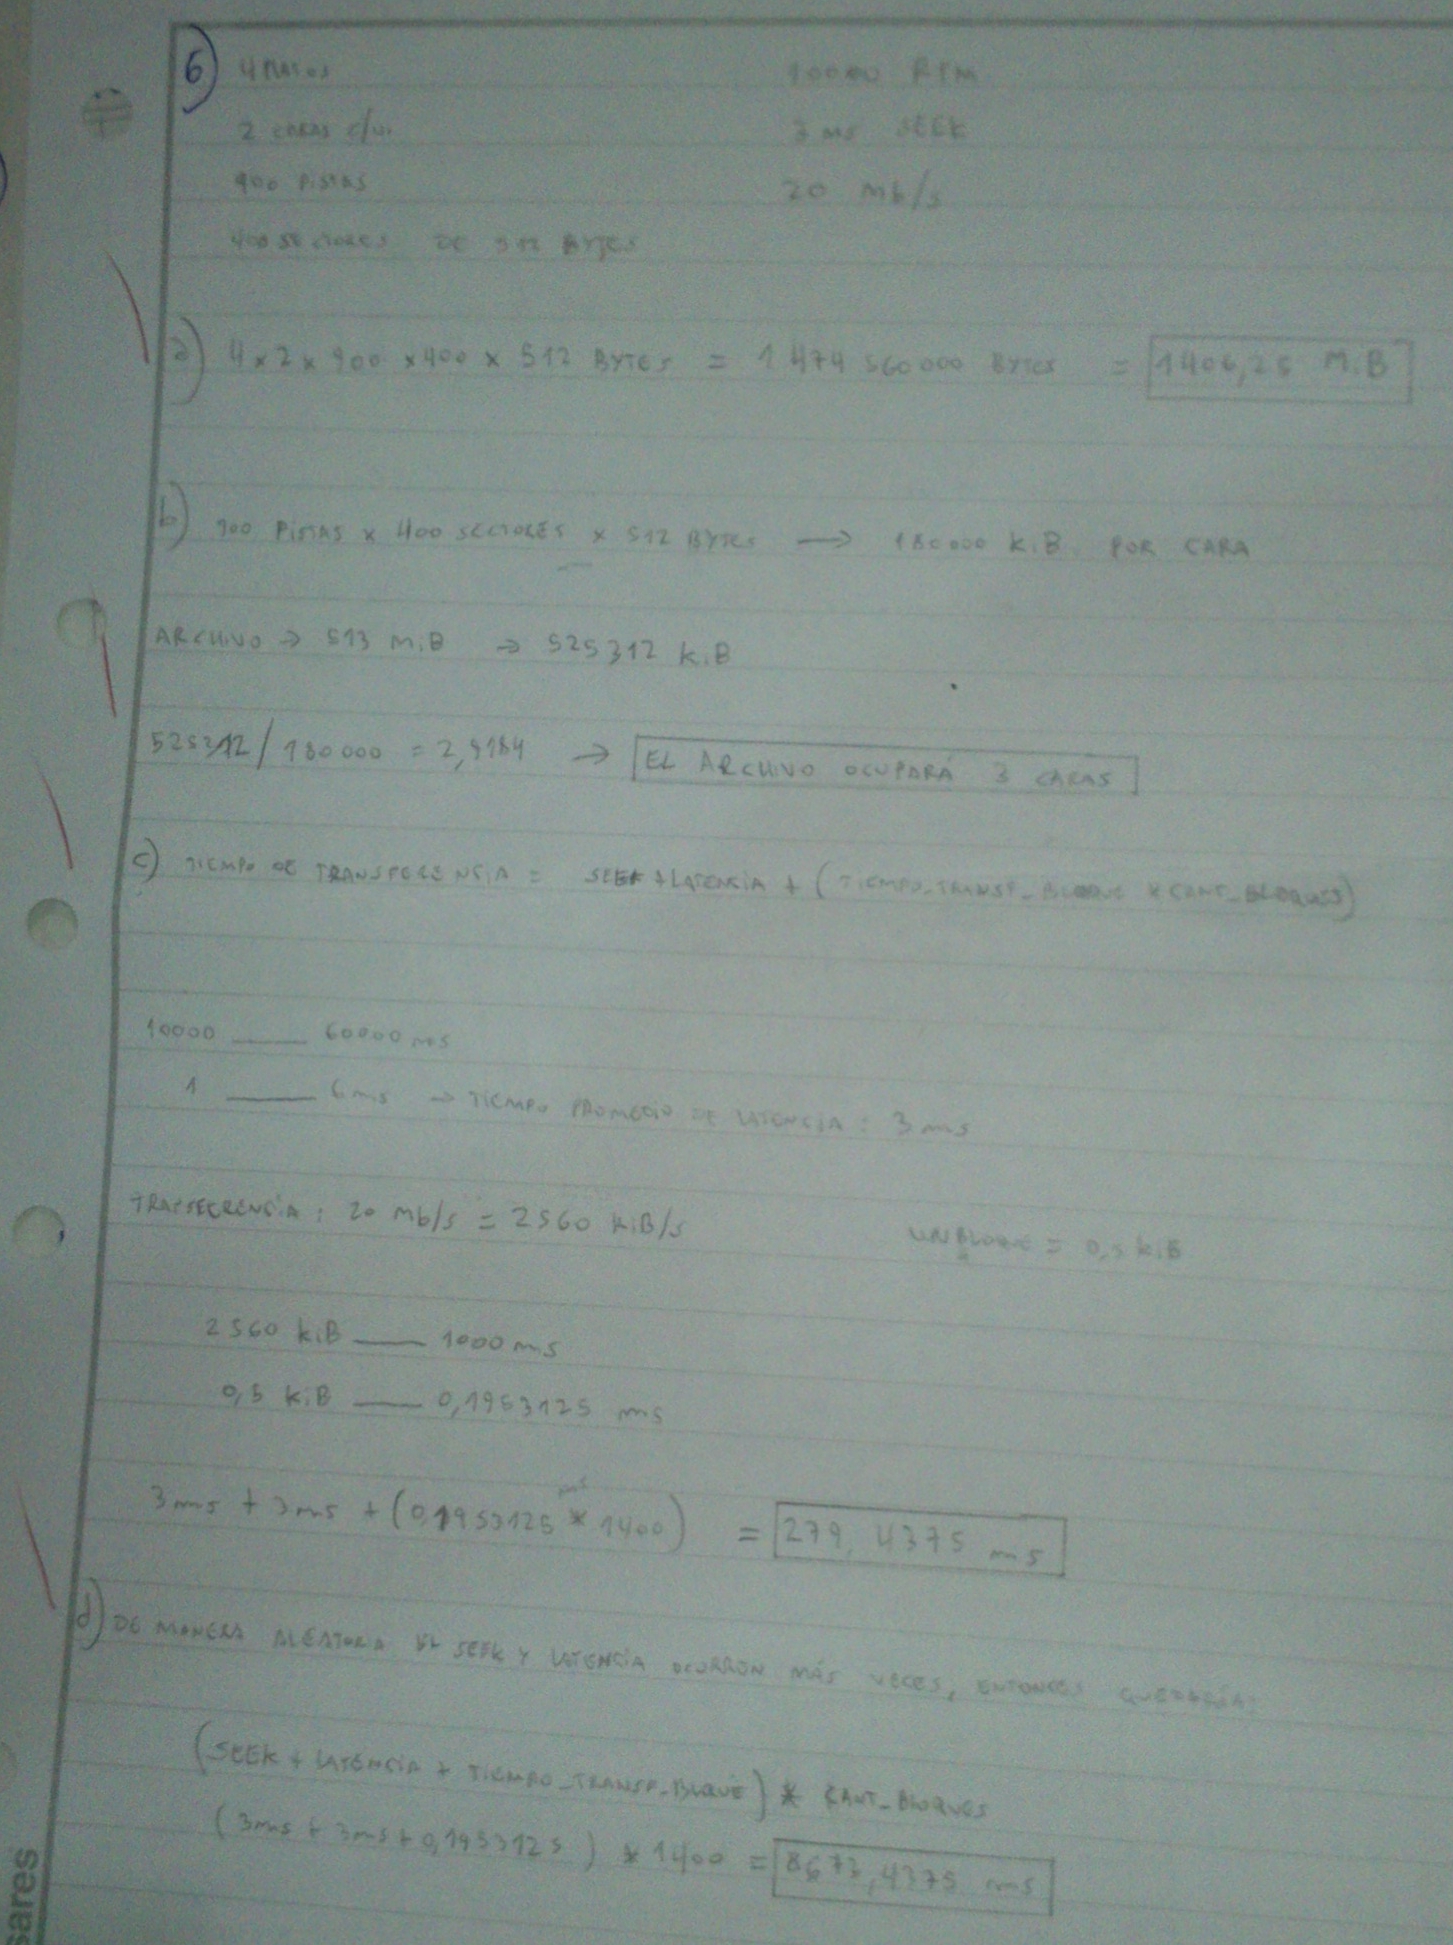 6) 4 PLATOS 10000 RPM
2 CARAS c/u. 3 ms SEEK
900 PISTAS 20 Mb/s
400 SECTORES DE 512 BYTES
a) 4 x 2 x 900 x 400 x 512 BYTES = 1 474 560 000 BYTES = 1406,25 MiB
b) 900 PISTAS x 400 SECTORES x 512 BYTES → 180000 KiB POR CARA
ARCHIVO → 513 MiB → 525312 KiB
525312 / 180000 = 2,9184 → EL ARCHIVO OCUPARÁ 3 CARAS
c) TIEMPO DE TRANSFERENCIA = SEEK + LATENCIA + (TIEMPO_TRANSF_BLOQUE * CANT_BLOQUES)
10000 ____ 60000 ms
1 ____ 6 ms → TIEMPO PROMEDIO DE LATENCIA: 3 ms
TRANSFERENCIA: 20 Mb/s = 2560 KiB/s UN BLOQUE = 0,5 KiB
2560 KiB ____ 1000 ms
0,5 KiB ____ 0,1953125 ms
3ms + 3ms + (0,1953125 ms * 1400) = 279,4375 ms
d) DE MANERA ALEATORIA EL SEEK Y LATENCIA OCURREN MÁS VECES, ENTONCES QUEDARÍA:
(SEEK + LATENCIA + TIEMPO_TRANSF_BLOQUE) * CANT_BLOQUES
(3ms + 3ms + 0,1953125) * 1400 = 8673,4375 ms
sares